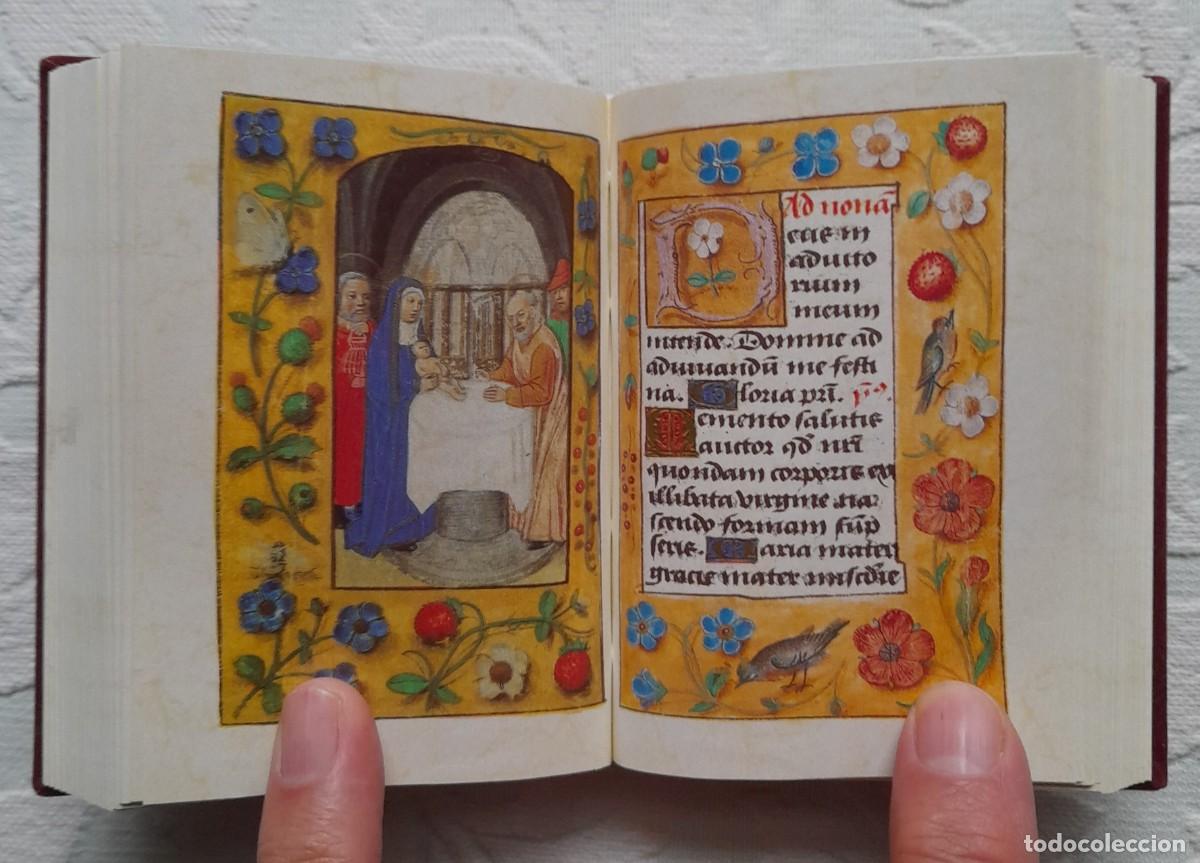 Ad nonā
Deus in
adiuto
rium
meum
intende. Domine ad
adiuuandū me festi
na. Gloria pr̄i. ps̄.
Memento salutis
auctor qd̄ nr̄i
quondam corporis ex
illibata virgine na
scendo formam sūp
seris. Maria mater
gracie mater misc̄die
todocoleccion